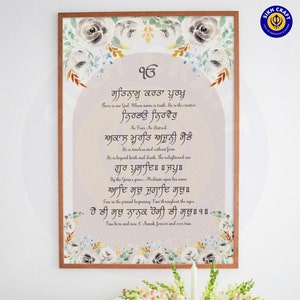 SIKH CRAFT
ੴ
ਸਤਿਨਾਮੁ ਕਰਤਾ ਪੁਰਖੁ
There is one God. Whose name is truth. He is the creator.
ਨਿਰਭਉ ਨਿਰਵੈਰੁ
No Fear. No Hatred.
ਅਕਾਲ ਮੂਰਤਿ ਅਜੂਨੀ ਸੈਭੰ
He is timeless and without form
He is beyond birth and death. The enlightened one
ਗੁਰ ਪ੍ਰਸਾਦਿ॥ ॥ਜਪੁ॥
By the Guru's grace. Meditate upon his name.
ਆਦਿ ਸਚੁ ਜੁਗਾਦਿ ਸਚੁ॥
True in the primal beginning. True throughout the ages.
ਹੈ ਭੀ ਸਚੁ ਨਾਨਕ ਹੋਸੀ ਭੀ ਸਚੁ॥੧॥
True here and now. O Nanak forever and ever true.